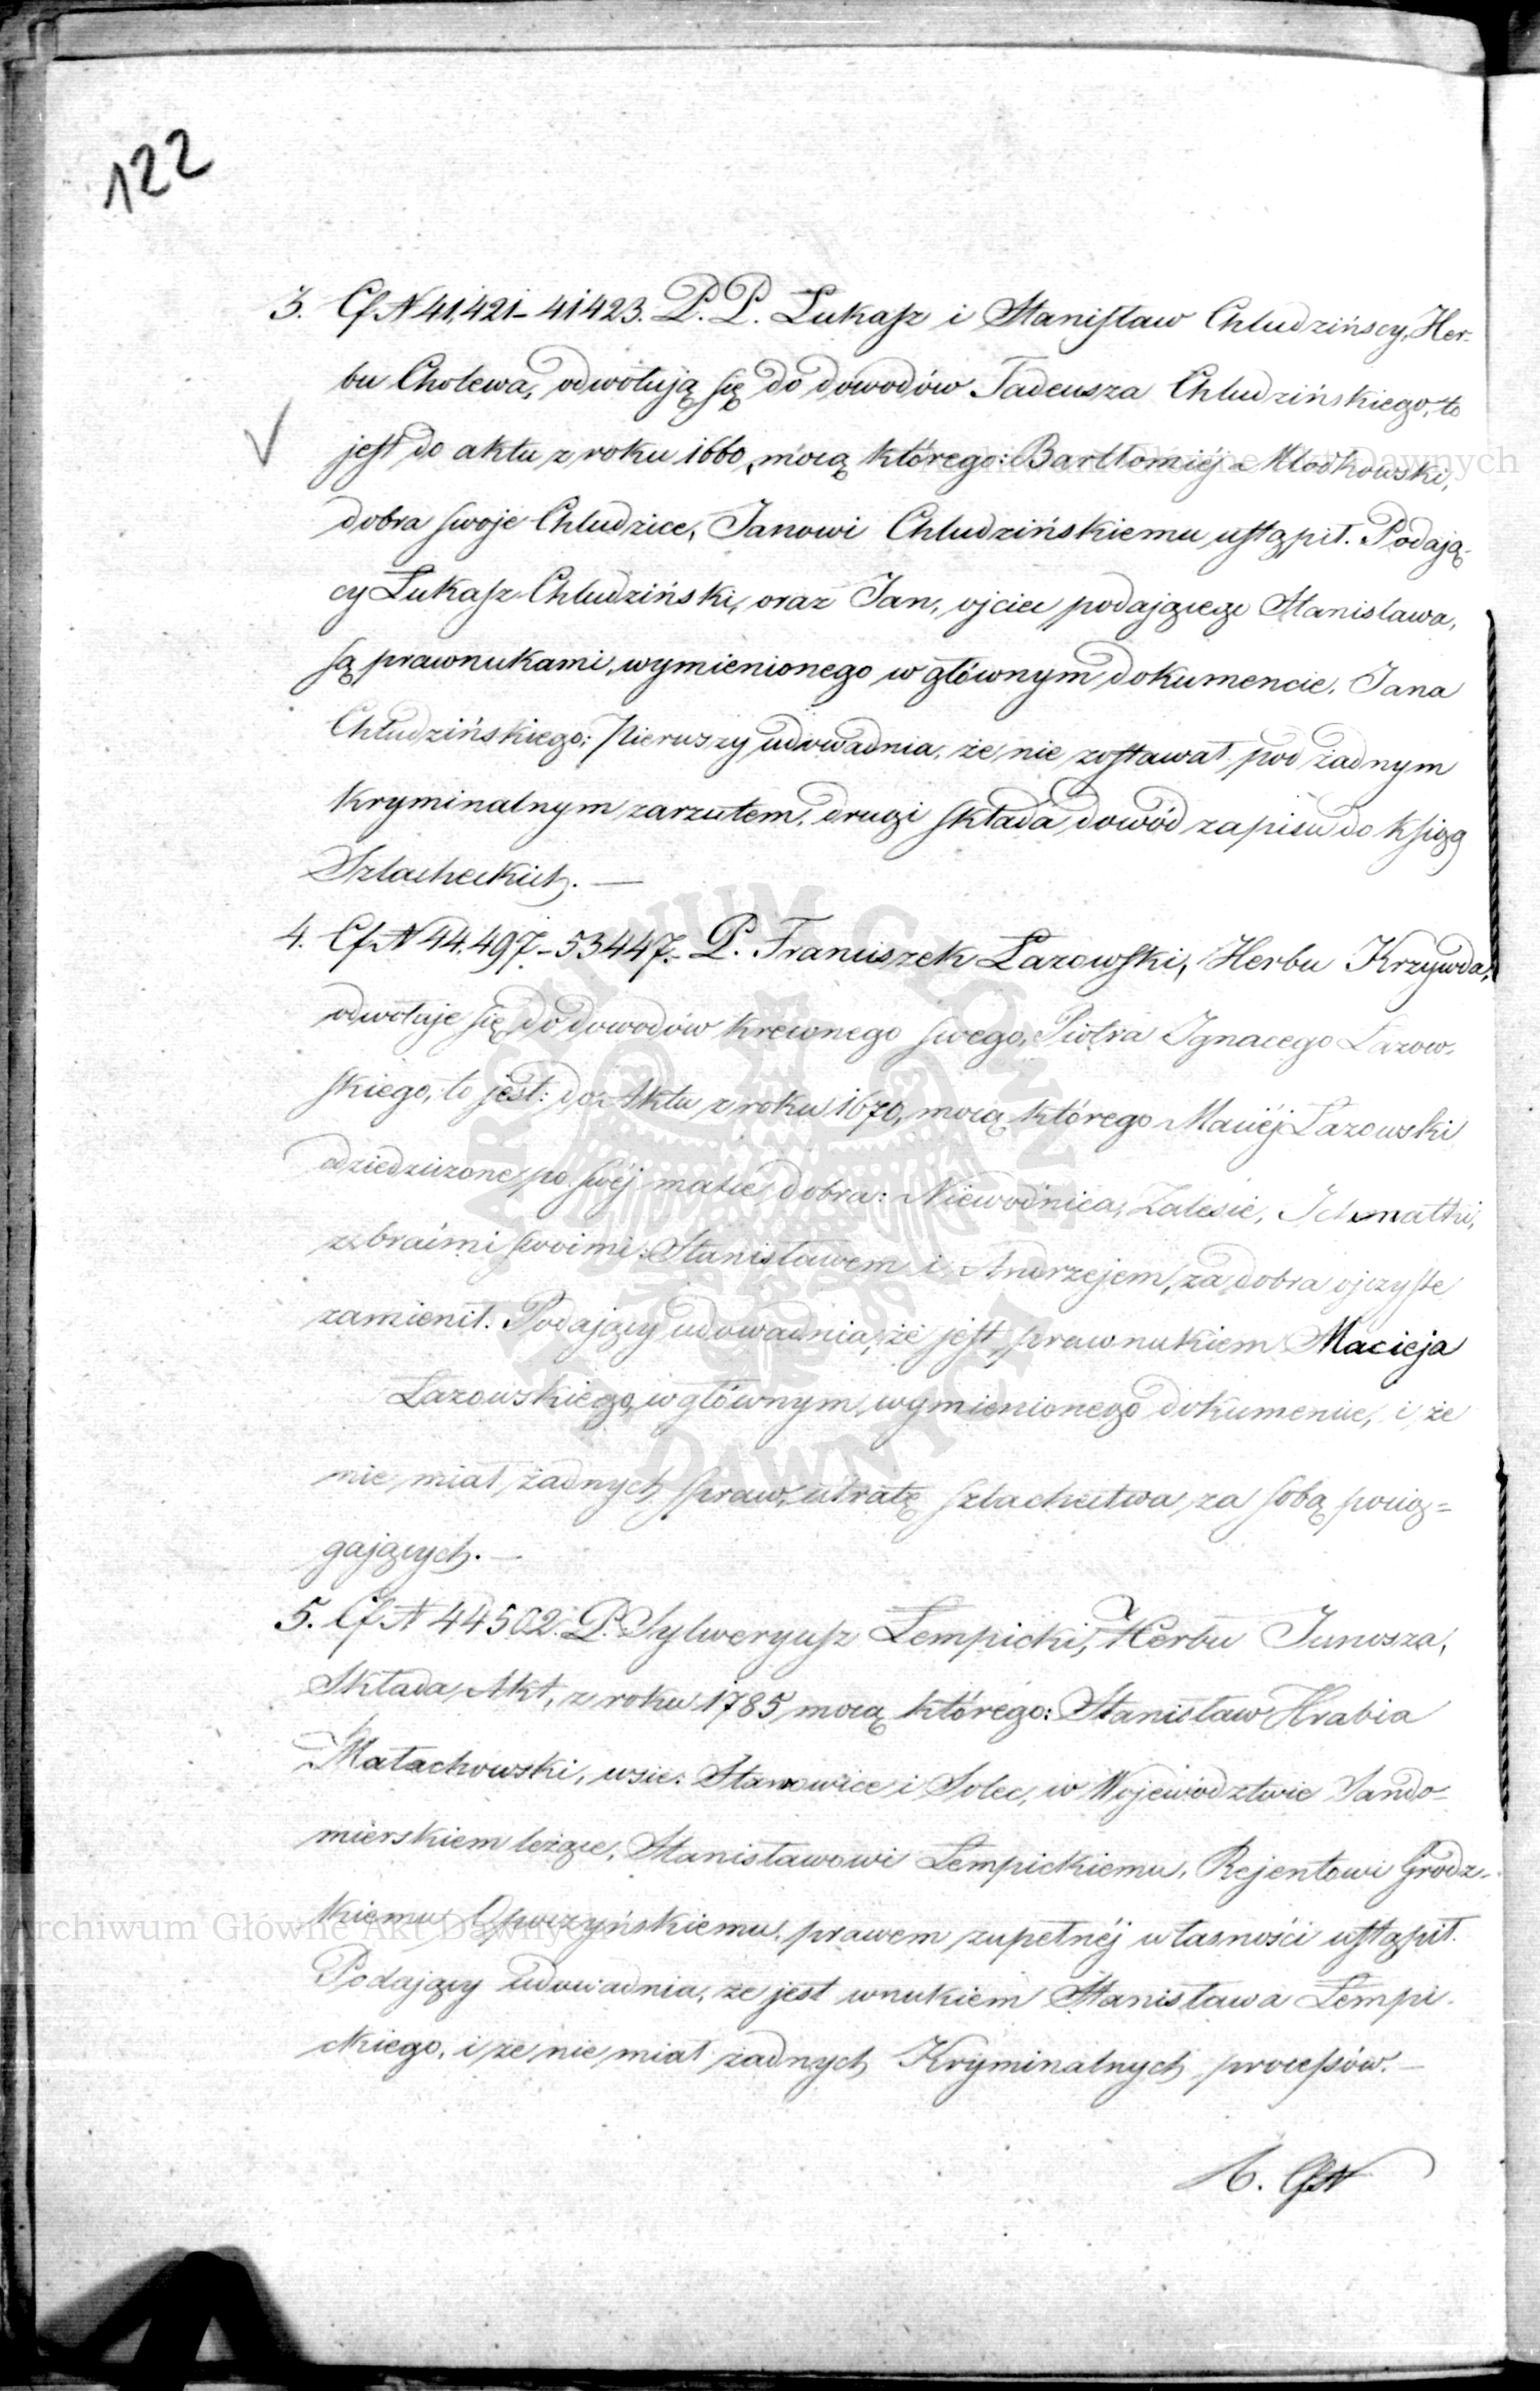 122
3. Cf N 41,421 - 41423. P.P. Łukasz i Stanisław Chludzińscy, Her-
bu Cholewa, odwołują się do dowodów Tadeusza Chludzińskiego, to
jest do aktu z roku 1660, mocą którego: Bartłomiéj Młodkowski,
dobra swoje Chludzice, Janowi Chludzińskiemu ustąpił. Podają-
cy Łukasz Chludziński, oraz Jan, ojciec podającego Stanisława,
są prawnukami, wymienionego w głównym dokumencie, Jana
Chludzińskiego; Pierwszy udowadnia, że nie zostawał pod żadnym
kryminalnym zarzutem, drugi składa dowód zapisu do ksiąg
Szlacheckich. —
4. Cf N 44.497 - 53447. P. Franciszek Łazowski, Herbu Krzywda,
odwołuje się do dowodów krewnego swego, Piotra Ignacego Łazow-
skiego, to jest: do Aktu z roku 1670, mocą którego Maciéj Łazowski
odziedziczone po swéj matce dobra: Niewodnica, Zalesie,
z braćmi swoimi: Stanisławem i Andrzejem, za dobra ojczyste
zamienił. Podający udowadnia, że jest prawnukiem Macieja
Łazowskiego, w głównym wymienionego dokumencie, i że
nie miał żadnych spraw, utratę szlachectwa za sobą pocią=
gających. —
5. Cf N 44502. P. Sylweryusz Łempicki, Herbu Junosza,
Składa Akt, z roku 1785 mocą którego: Stanisław Hrabia
Małachowski, wsie: Stanowice i Solec, w Województwie Sando-
mierskiem leżące, Stanisławowi Łempickiemu, Rejentowi Grodz-
kiemu Opoczyńskiemu, prawem zupełnéj własności ustąpił.
Podający udowadnia, że jest wnukiem Stanisława Łempi-
ckiego, i że nie miał żadnych Kryminalnych procesów. —
6. Cf N
Archiwum Główne Akt Dawnych
ARCHIWUM GŁÓWNE AKT DAWNYCH
Archiwum Główne Akt Dawnych